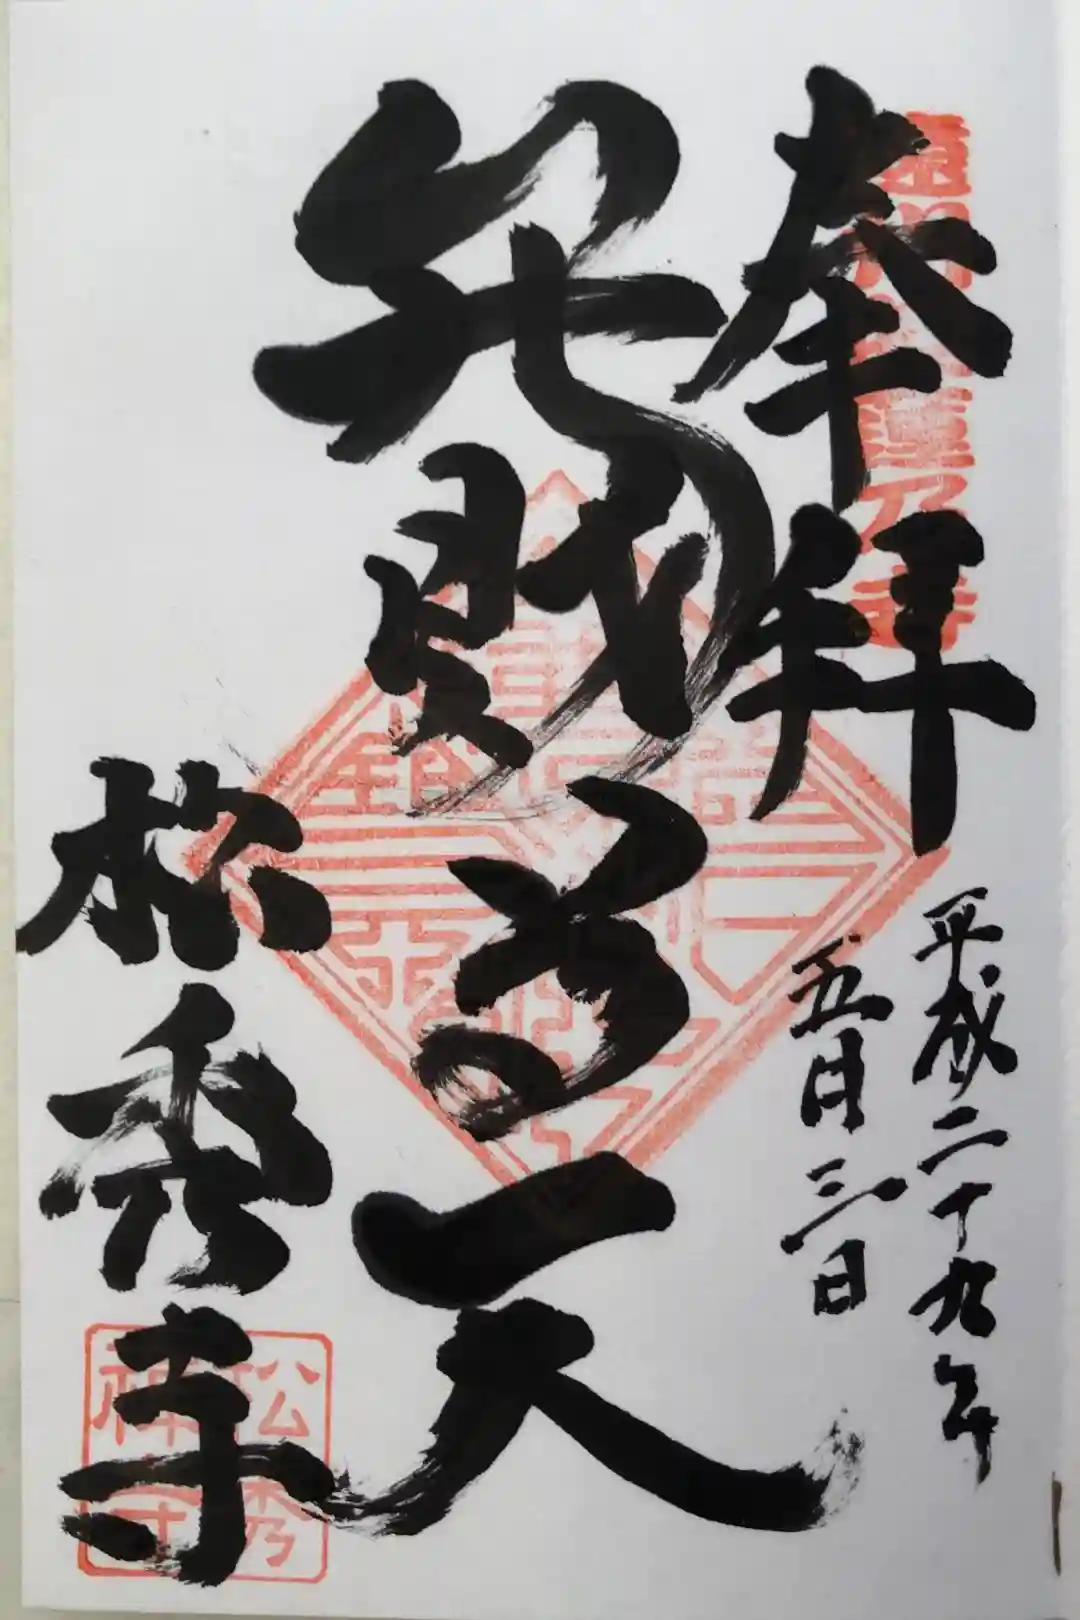 奉拝
平成二十九年
五月三日
弁財尊天
松秀寺
松秀
禅寺